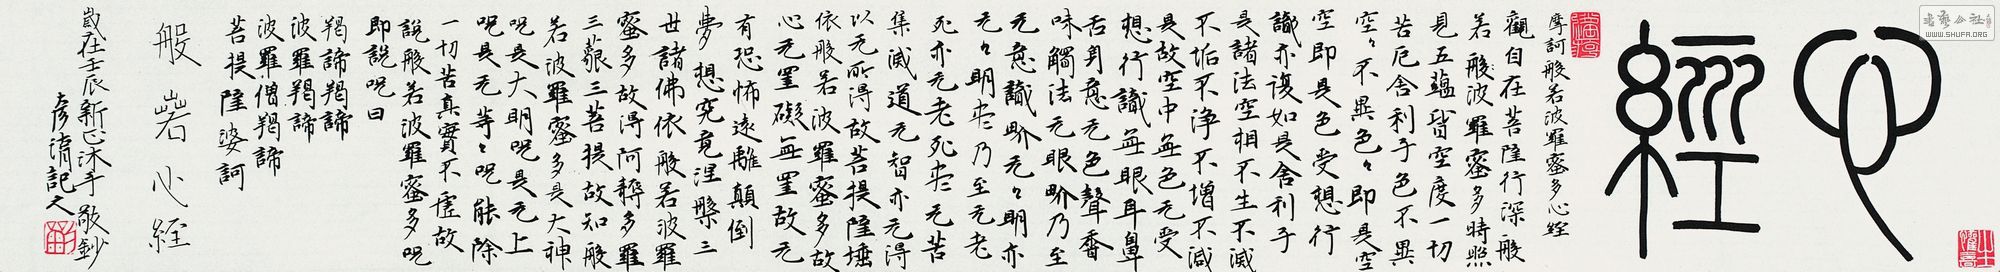 心經
摩訶般若波羅蜜多心經
觀自在菩薩行深般
若般波羅蜜多時照
見五蘊皆空度一切
苦厄舍利子色不異
空々不異色々即是空
空即是色受想行
識亦復如是舍利子
是諸法空相不生不滅
不垢不淨不增不減
是故空中無色无受
想行識無眼耳鼻
舌身意无色聲香
味觸法无眼界乃至
无意識界无々明亦
无々明尽乃至无老
死亦无老死尽无苦
集滅道无智亦无得
以无所得故菩提薩埵
依般若波羅蜜多故
心无罣礙無罣故无
有恐怖遠離顛倒
夢想究竟涅槃三
世諸佛依般若波羅
蜜多故得阿耨多羅
三藐三菩提故知般
若波羅蜜多是大神
呪是大明呪是无上
呪是无等々呪能除
一切苦真實不虛故
說般若波羅蜜多呪
即說呪曰
羯諦羯諦
波羅羯諦
波羅僧羯諦
菩提薩婆訶
般若心経
歲在壬辰新正沐手敬鈔
記之
书艺公社
WWW.SHUFA.ORG